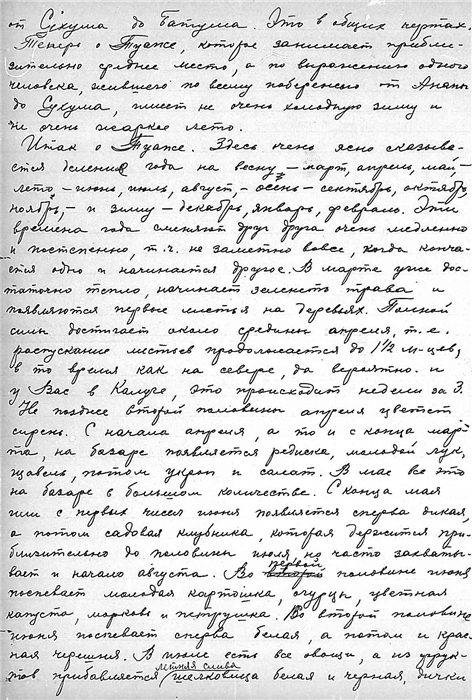 от Сухума до Батума. Это в общих чертах.
Теперь о Туапсе, которое занимает прибли-
зительно среднее место, а по выражению одного
человека, жившего по всему побережью от Анапы
до Сухума, имеет не очень холодную зиму и
не очень жаркое лето.
Итак о Туапсе. Здесь очень ясно сказыва-
ется деление года на весну, – март, апрель, май, –
лето, – июнь, июль, август, – осень – сентябрь, октябрь,
ноябрь, – и зиму – декабрь, январь, февраль. Эти
времена года сменяют друг друга очень медленно
и постепенно, т.ч. не заметно вовсе, когда конча-
ется одно и начинается другое. В марте уже дос-
таточно тепло, начинает зеленеть трава и
появляются первые листья на деревьях. Полной
силы достигает около средины апреля, т.е.
распускание листьев продолжается до 1 1/2 м-цев,
в то время как на севере, да вероятно и
у Вас в Калуге, это происходит недели за 3.
Не позднее второй половины апреля цветет
сирень. С начала апреля, а то и с конца мар-
та, на базаре появляется редиска, молодой лук,
щавель, потом укроп и салат. В мае все это
на базаре в большом количестве. С конца мая
или с первых чисел июня появляется сперва дикая,
а потом садовая клубника, которая держится при-
близительно до половины июля, но часто захваты-
вает и начало августа. Во первой половине июня
поспевает молодая картошка, огурцы, цветная
капуста, морковь и петрушка. Во второй половине
июня поспевает сперва белая, а потом и крас-
ная черешня. В июле есть все овощи, а из фрук-
тов прибавляется летняя слива, шелковица белая и черная, дички